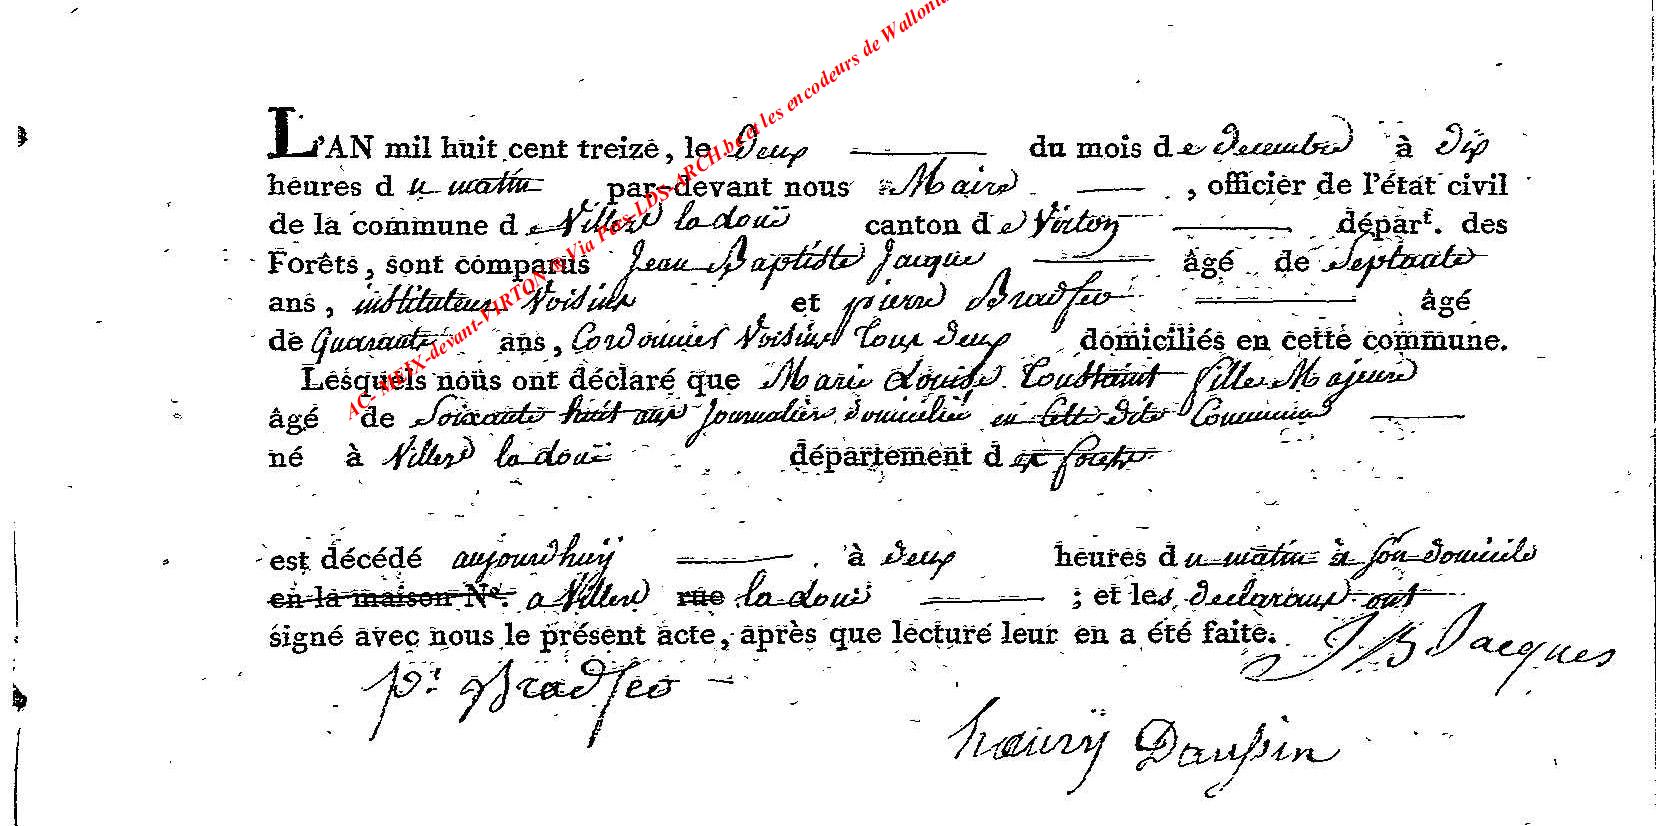 L'AN mil huit cent treize, le Deux du mois de Decembre à Dix
heures du matin par-devant nous Maire , officier de l'état civil
de la commune de Villers la douï canton de Virton départ. des
Forêts, sont comparus Jean Baptiste Jacque âgé de Septante
ans, instituteur Voisins et pierre Bradfer âgé
de Quarante ans, Cordonnier Voisins Tous Deux domiciliés en cette commune.
Lesquels nous ont déclaré que Marie Louise Toustaint fille Majeure
âgé de Soixante huit ans Journalier domicilié en Cette dite Commune
né à Villers la douï département des forets
est décédé aujourdhuij à deux heures du matin à son domicile
en la maison N°. a Villers rue la douï ; et les declarans ont
signé avec nous le présent acte, après que lecture leur en a été faite. J B Jacques
pr Bradfer
haury
AC- MEIX-devant-VIRTON ® Via Pers-LDS-ARCH.be et les encodeurs de Wallonie